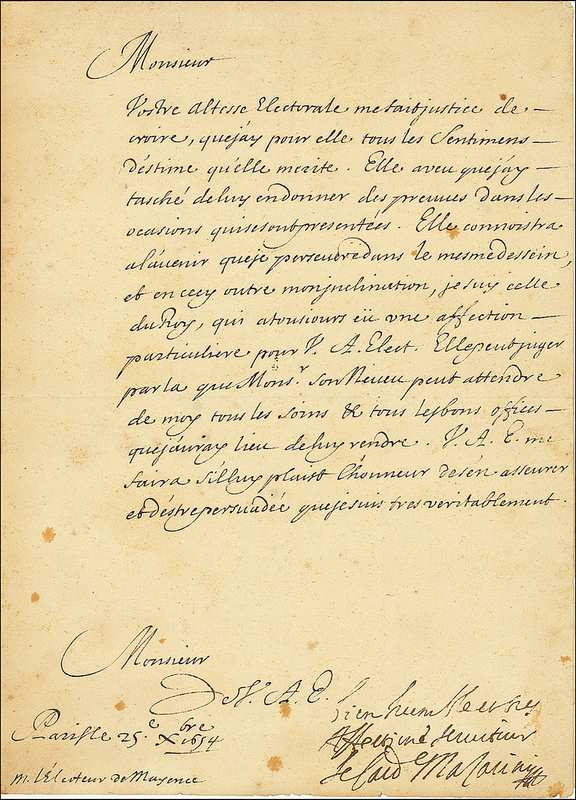 Monsieur
Vostre Altesse Electorale me fait justice de
croire, que jay pour elle tous les Sentimens
d'estime qu'elle merite. Elle a veu que jay
tasché de luy en donner des preuves dans les
occasions qui se sont presentées. Elle connoistra
a l'avenir que je persevere dans le mesme dessein,
et en cecy outre mon inclination, je suy celle
du Roy, qui a tousiours eü vne affection
particuliere pour V. A. Elect. Elle peut juger
par la que Monsr. son Neveu peut attendre
de moy tous les soins & tous les bons offices
que jauray lieu de luy rendre. V. A. E. me
faira s'il luy plaist l'honneur de s'en asseurer
et d'estre persuadée que je suis tres veritablement.
Monsieur
De V. A. E.
bien humble et tres
affectionné serviteur
le Card Mazarini
Paris le 25.e Xbre 1654
M. l'Electeur de Mayence